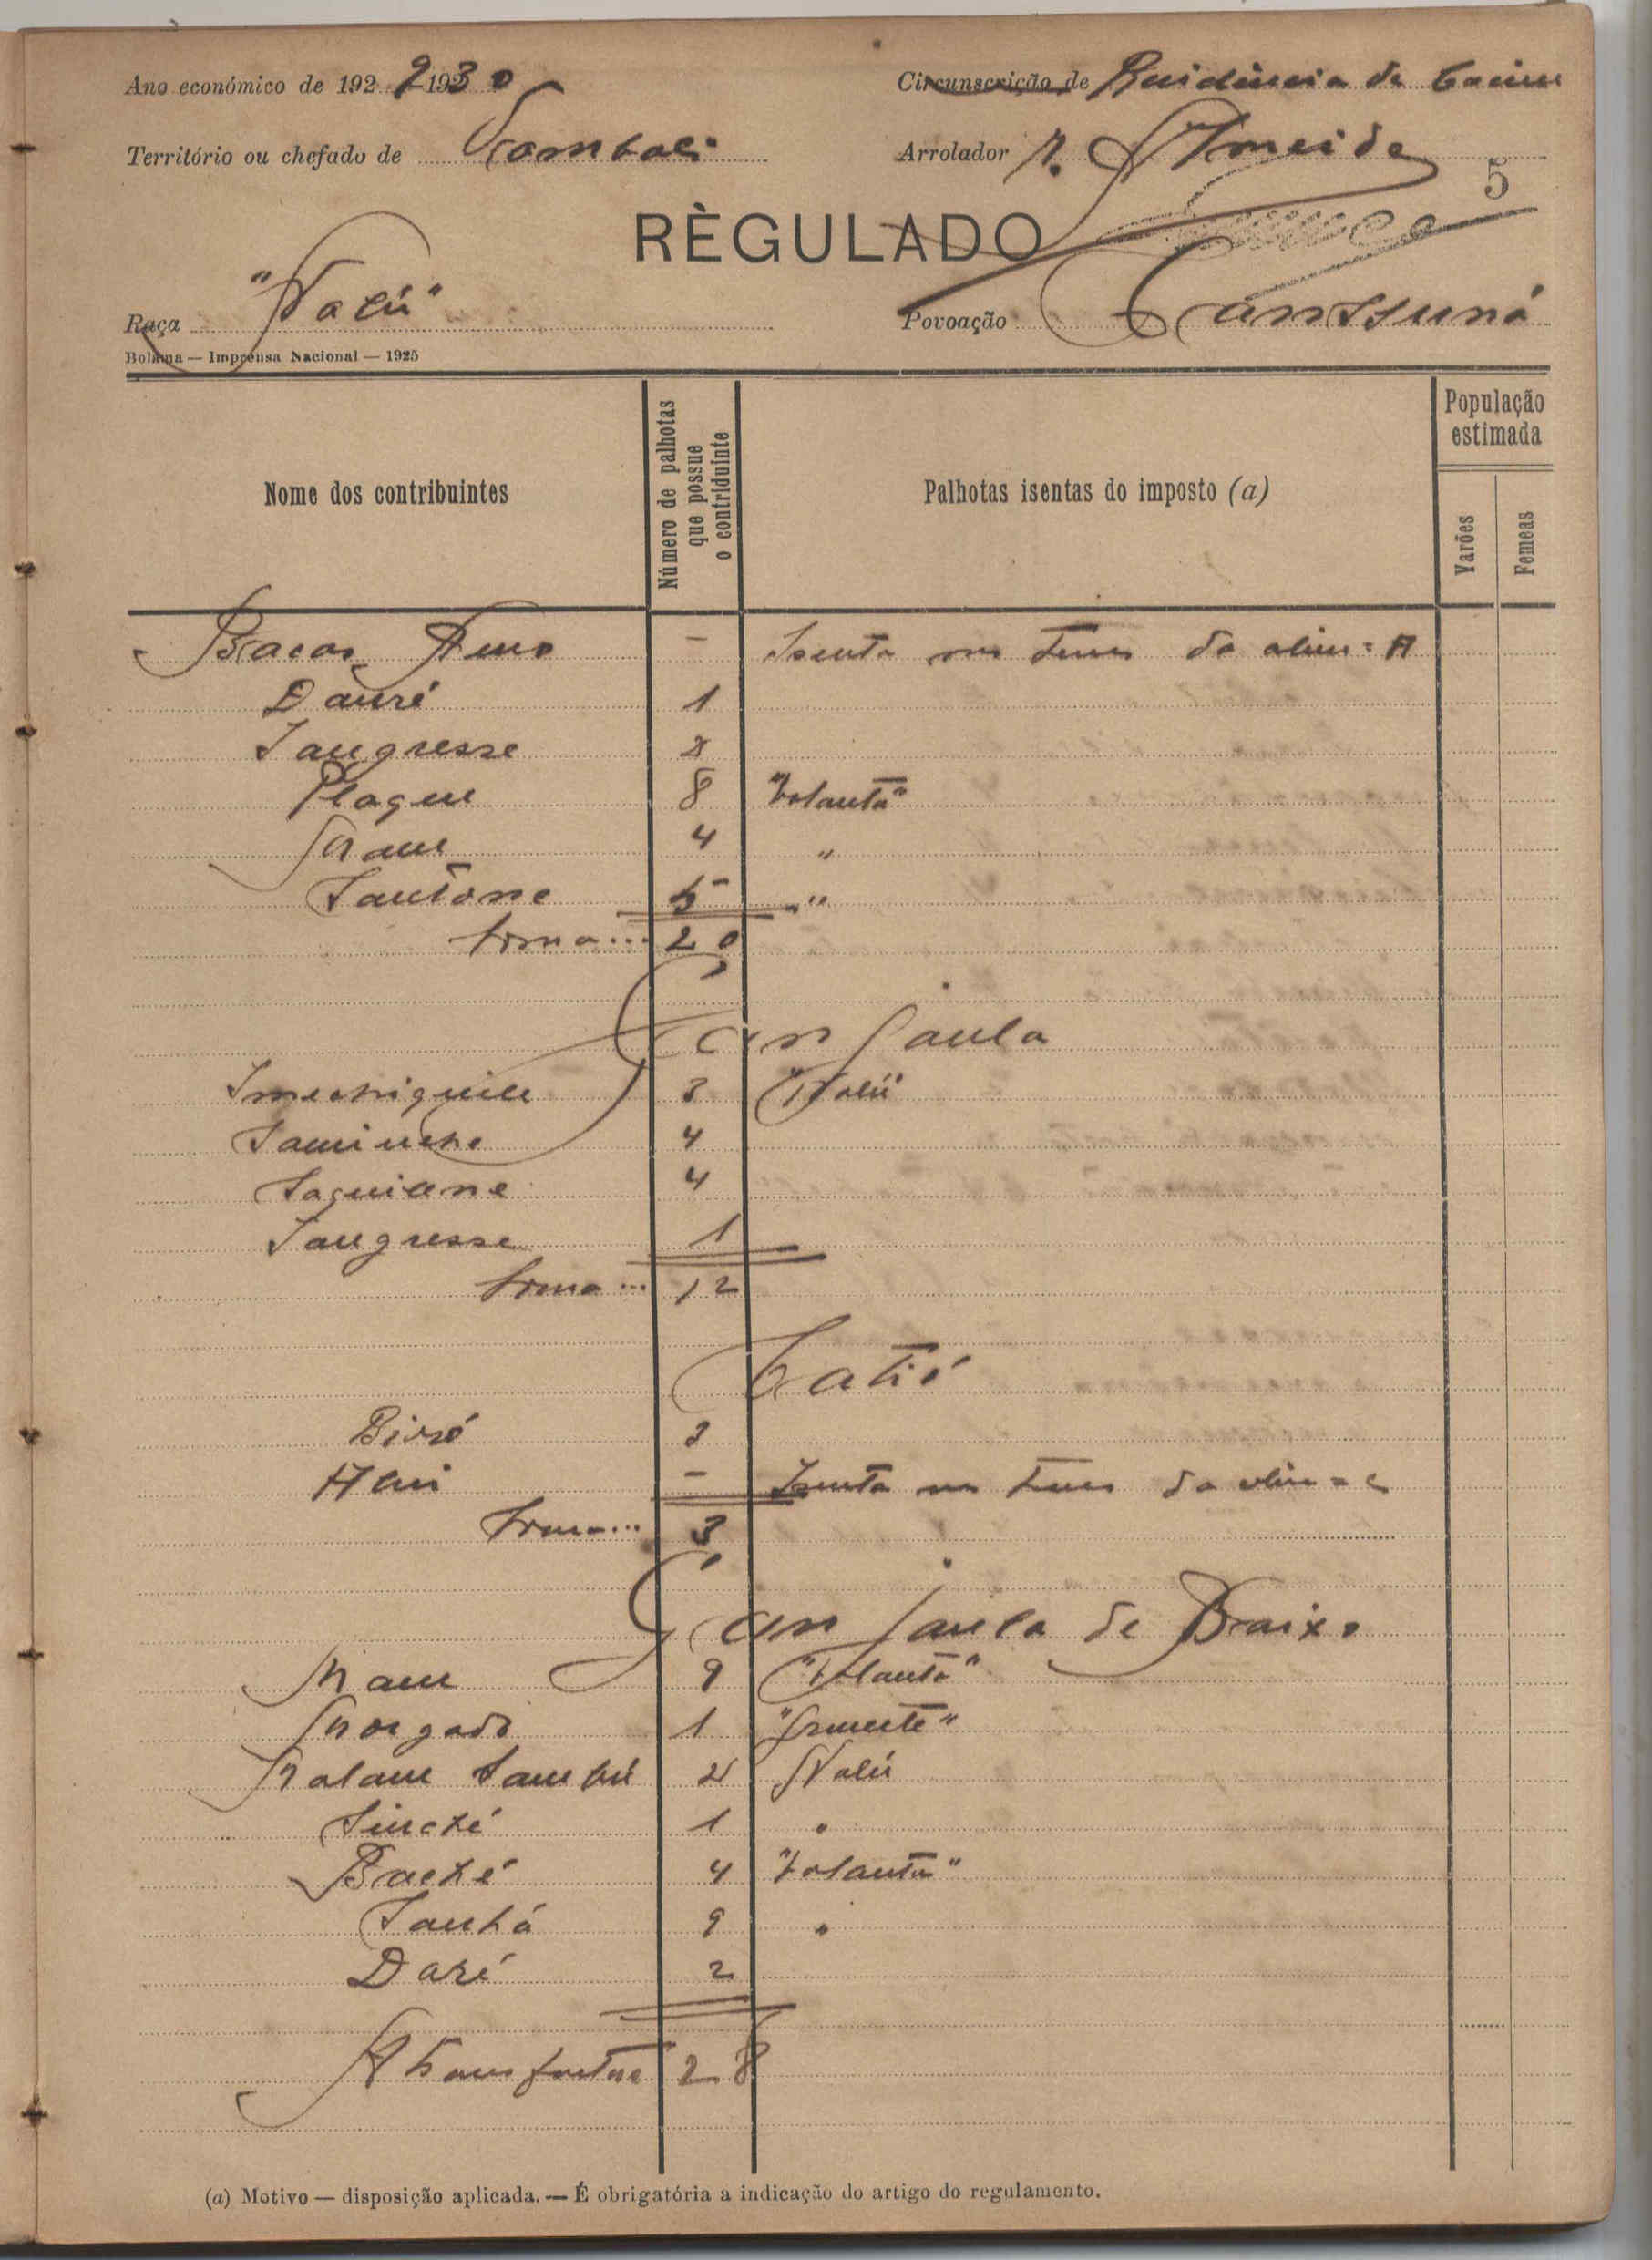 Ano económico de 1929-1930
Circunscrição de Residência de Cacine
Território ou chefado de Tombali
Arrolador A. Almeida
5
RÈGULADO
Raça "Nalú"
Povoação Canssuná
Bolama — Imprensa Nacional — 1925
Nome dos contribuintes
Número de palhotas que possue o contriduinte
Palhotas isentas do imposto (a)
População estimada
Varões
Femeas
Bacar - Isenta nos termos da alin: A
Dauré 1
Sangresse 2
Plaque 8 "Balanta"
4 "
Santone 5 "
Soma... 20
Can Saula
3 "Nalú"
4
Saquiane 4
Sangresse 1
Soma... 12
Catió
3
- Isenta nos termos da alin = c
Soma... 3
Can Saula de Baixo
9 "Balanta"
Morgado 1
2 Nalú
1 "
4 "Balanta"
9 "
Daré 2
A transportar 28
(a) Motivo — disposição aplicada. — É obrigatória a indicação do artigo do regulamento.